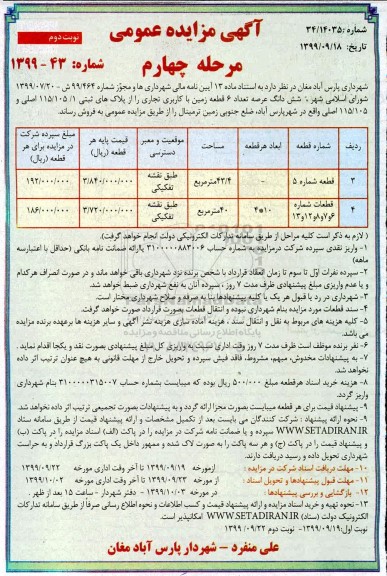 نوبت دوم
آگهی مزایده عمومی
مرحله چهارم
شماره: ۳۴/۱۴۰۳۵
تاریخ: ۱۳۹۹/۰۹/۱۸
شماره: ۴۳ - ۱۳۹۹
شهرداری پارس آباد مغان در نظر دارد به استناد ماده ۱۳ آیین نامه مالی شهرداری ها و مجوز شماره ۹۹/۴۶۴/ش - ۱۳۹۹/۰۷/۲۰
شورای اسلامی شهر، شش دانگ عرصه تعداد ۶ قطعه زمین با کاربری تجاری را از پلاک های ثبتی ۱/ ۱۱۵/۱۰۵ اصلی و
۱۱۵/۱۰۵ اصلی واقع در شهرپارس آباد، ضلع جنوبی زمین ترمینال را از طریق مزایده عمومی به فروش رساند.
ردیف | شماره قطعه | ابعاد هرقطعه | مساحت | موقعیت و معبر دسترسی | قیمت پایه هر قطعه (ریال) | مبلغ سپرده شرکت در مزایده برای هر قطعه (ریال)
۳ | قطعه شماره ۵ | | ۴۲/۴مترمربع | طبق نقشه تفکیکی | ۳/۸۴۰/۰۰۰/۰۰۰ | ۱۹۲/۰۰۰/۰۰۰
۴ | قطعات شماره ۶و۷و۸و۱۲و۱۳ | ۱۰*۴ | ۴۰مترمربع | طبق نقشه تفکیکی | ۳/۷۲۰/۰۰۰/۰۰۰ | ۱۸۶/۰۰۰/۰۰۰
( لازم به ذکر است کلیه مراحل از طریق سامانه تدارکات الکترونیکی دولت انجام خواهد گرفت).
۱- واریز نقدی سپرده شرکت درمزایده به شماره حساب ۳۱۰۰۰۰۰۸۸۳۰۰۶ یا ارائه ضمانت نامه بانکی (حداقل با اعتبارسه
ماهه)
۲- سپرده نفرات اول تا سوم تا زمان انعقاد قرارداد با شخص برنده نزد شهرداری باقی خواهد ماند و در صورت انصراف هرکدام
و یا عدم واریزی مبلغ پیشنهادی ظرف مدت ۷ روز، سپرده آنان به نفع شهرداری ضبط خواهد شد.
۳- شهرداری در رد یا قبول هر یک یا کلیه پیشنهادها بنا به صرفه و صلاح شهرداری مختار است.
۴- سند قطعات مورد مزایده بنام شهرداری نبوده و انتقال قطعات بصورت قرارداد صورت خواهد گرفت.
۵- کلیه هزینه های مربوط به نقل و انتقال سند، هزینه آماده سازی هزینه نشر آگهی و سایر هزینه ها برعهده برنده مزایده
می باشد.
۶- نفر برنده موظف است ظرف مدت ۷ روز وقت اداری نسبت به واریزی کل مبلغ پیشنهادی بصورت نقد و یکجا اقدام نماید.
۷- به پیشنهادات مخدوش، مبهم، مشروط، فاقد فیش سپرده و تحویل خارج از مهلت قانونی به هیچ عنوان ترتیب اثر داده
نخواهد شد.
۸- هزینه خرید اسناد هرقطعه مبلغ ۵۰۰/۰۰۰ ریال بوده که میبایست بشماره حساب ۳۱۰۰۰۰۰۳۱۵۰۰۷ بنام شهرداری
واریز گردد.
۹- پیشنهاد قیمت برای هر قطعه میبایست بصورت مجزا ارائه گردد و به پیشنهادات بصورت تجمیعی ترتیب اثر داده نخواهد شد.
۹- نحوه ارائه پیشنهاد: شرکت کنندگان می بایست بعد از تکمیل مشخصات و ارائه پیشنهاد قیمت از طریق سامانه ستاد
WWW.SETADIRAN.IR سپرده و یا ضمانت نامه شرکت در مزایده را در پاکت (الف) اسناد مزایده را در پاکت (ب)
و پیشنهاد قیمت را در پاکت (ج) و هر سه پاکت را به صورت لاک شده و ممهور داخل یک پاکت بزرگ قرارداد و به حراست
شهرداری تحویل داده و رسید دریافت دارند.
۱۰- مهلت دریافت اسناد شرکت در مزایده : ازمورخه ۱۳۹۹/۰۹/۱۹ تا آخر وقت اداری مورخه ۱۳۹۹/۰۹/۲۲
۱۱- مهلت قبول پیشنهادها و تحویل اسناد : از مورخه ۱۳۹۹/۰۹/۲۳ تا آخر وقت اداری مورخه ۱۳۹۹/۱۰/۰۲
۱۲- بازگشایی و بررسی پیشنهادها : مورخه ۱۳۹۹/۱۰/۰۳ - دفتر شهردار - ساعت ۱۵ بعد از ظهر.
۱۳- نحوه تهیه و خرید اسناد مزایده و ارائه پیشنهاد قیمت و کسب اطلاعات و نحوه اطلاع رسانی صرفاً از طریق سامانه تدارکات
الکترونیک دولت (ستاد) WWW.SETADIRAN.IR امکانپذیر است.
نوبت اول:۱۳۹۹/۰۹/۱۹- نوبت دوم ۱۳۹۹/۰۹/۲۲
علی منفرد – شهردار پارس آباد مغان